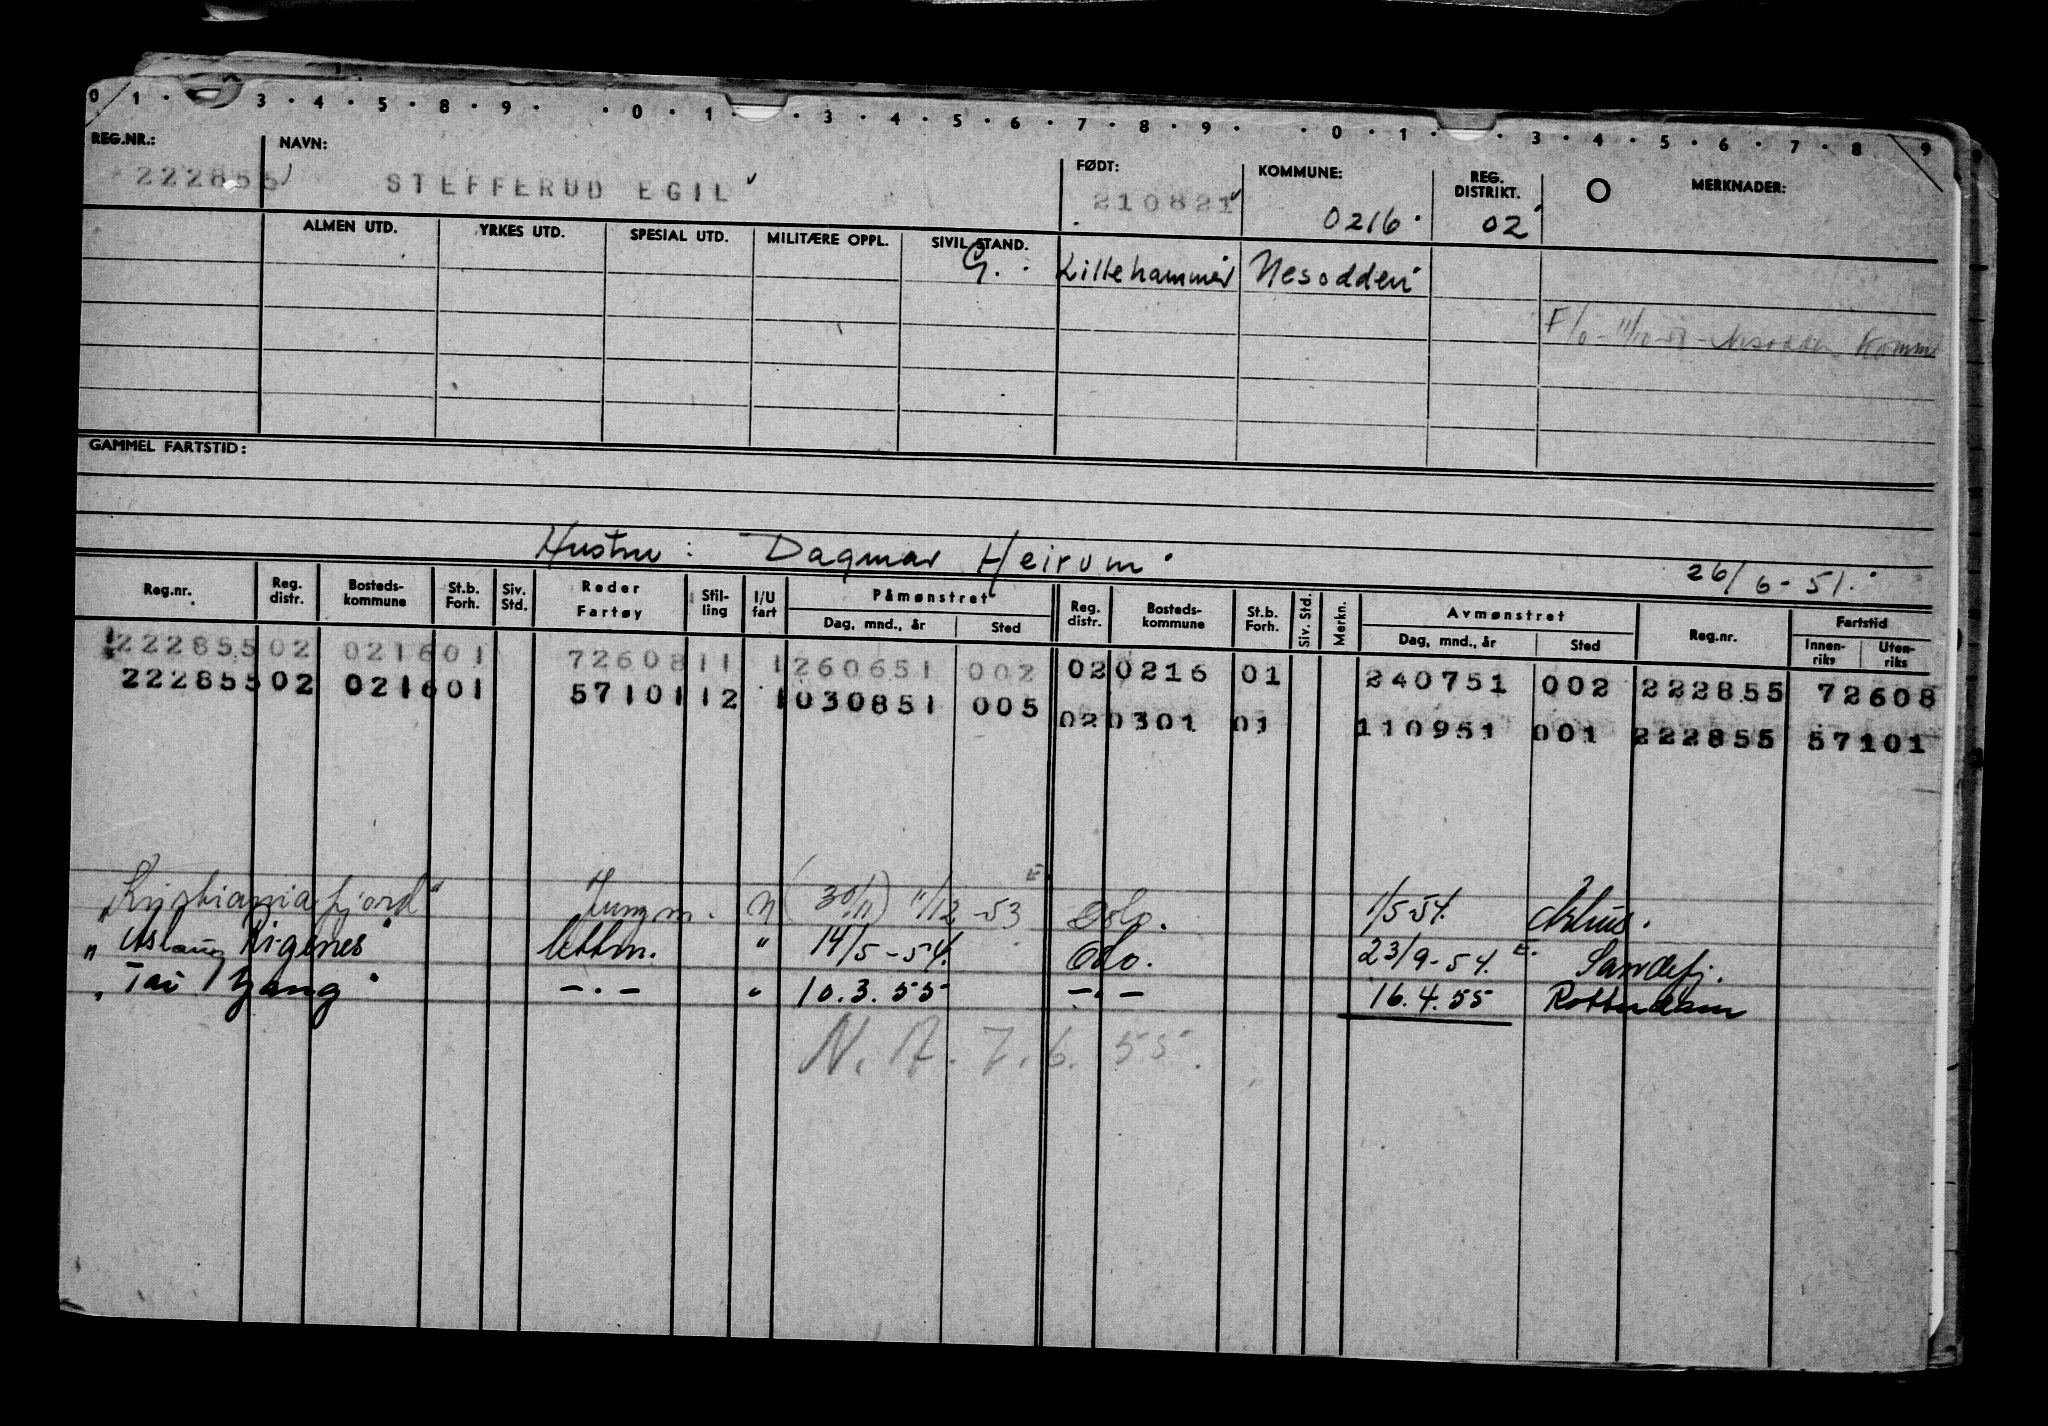 0 1 · 3 · 4 · 5 · 8 · 9 · · 0 · 1 · · 3 · 4 · 5 · 6 · 7 · 8 · 9 · · 0 · 1 · · 3 · 4 · 5 · 6 · 7 · 8 9
REG.NR.: NAVN: FØDT: KOMMUNE: REG. DISTRIKT. MERKNADER:
222855 STEFFERUD EGIL 210821 0216 02
ALMEN UTD. YRKES UTD. SPESIAL UTD. MILITÆRE OPPL. SIVIL STAND.
G. Lillehammer Nesodden
Komm
GAMMEL FARTSTID:
Hustru: Dagmar Heirum 26/6-51.
Reg.nr. Reg. distr. Bosteds-kommune St.b. Forh. Siv. Std. Reder Fartøy Stil-ling I/U fart Påmønstret Reg. distr. Bosteds-kommune St.b. Forh. Siv. Std. Merkn. Avmønstret Reg.nr. Fartstid
Dag, mnd., år Sted Dag, mnd., år Sted Innen-riks Uten-riks
222855 02 0216 01 72608 11 1 260651 002 02 0216 01 240751 002 222855 72608
222855 02 0216 01 57101 12 1 030851 005 02 0301 01 110951 001 222855 57101
"Kristianiafjord" Jungm. (30/11) 11/12-53 Oslo. 1/5-54. Århus.
"Aslaug Rigenes" lettm. " 14/5-54. Oslo. 23/9-54. Sandefj.
"Tai Yang" -.- " 10.3.55 -.- 16.4.55 Rotterdam
N.A. 7.6.55.